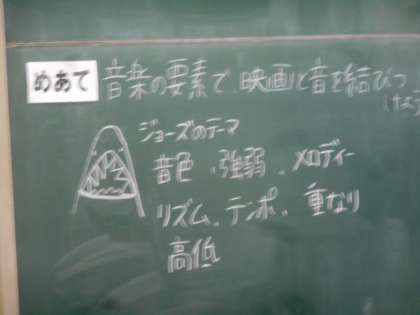 めあて 音楽の要素で、映画と音を結びつ
ジョーズのテーマ
音色・強弱・メロディー
リズム、テンポ、重なり
高低